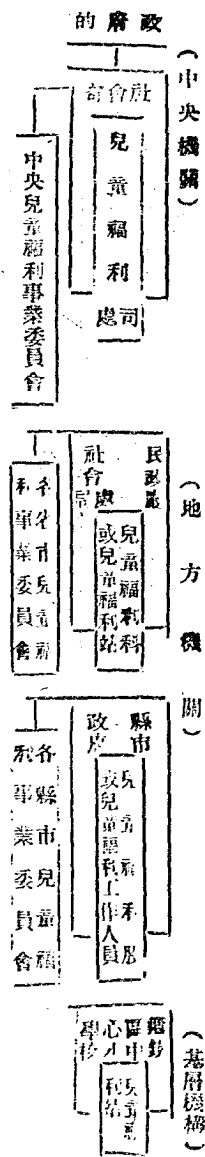 政府的
（中央機關）
社會部
兒童福利司處
中央兒童福利事業委員會
（地方機關）
民政廳
社會處局
兒童福利科
或兒童福利站
各省市兒童福利事業委員會
縣市政府
兒童福利股
或兒童福利工作人員
各縣市兒童福利事業委員會
（基層機構）
鄉鎮
區中心學校
兒童福利站